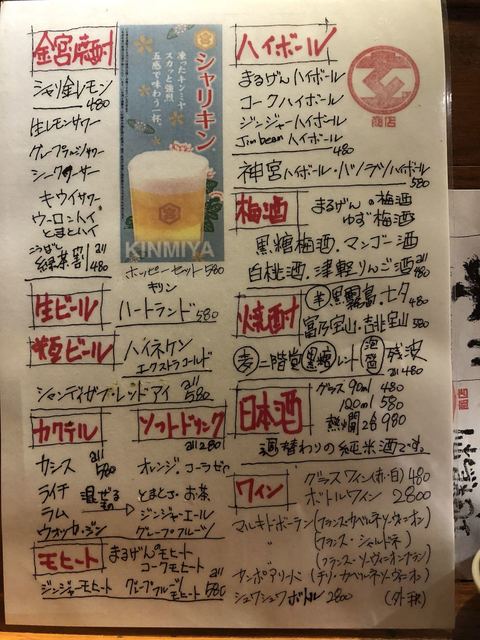 金宮焼酎
シャリ金レモン
480
生レモンサワー
グレープフルーツサワー
シークワーサー
キウイサワー
ウーロンハイ
とまとハイ
こうばし
緑茶割
all 480
シャリキン
凍ったキンミヤ
スカッと強烈
五感で味わう一杯。
KINMIYA
ホッピーセット 580
生ビール
キリン
ハートランド 580
瓶ビール
ハイネケン
エクストラコールド
シャンディガフ・レッドアイ all 580
カクテル
カシス all 580
ライチ
ラム
ウォッカ・ジン
混ぜる
ソフトドリンク
all 280
オレンジ・コーラ
とまと・お茶
ジンジャーエール
グレープフルーツ
モヒート
まるげんモヒート
コークモヒート
ジンジャーモヒート
グレープフルーツモヒート all 580
ハイボール
まるげんハイボール
コークハイボール
ジンジャーハイボール
Jim beam ハイボール
480
神宮ハイボール・バノックハイボール
580
商店
梅酒
まるげんの梅酒
ゆず梅酒
黒糖梅酒・マンゴー酒
白桃酒・津軽りんご酒 all 480
焼酎
芋 黒霧島・七夕 480
富乃宝山・吉兆宝山 580
麦 二階堂 黒糖 レント 泡盛 残波
all 480
日本酒
グラス 90ml 480
120ml 580
熱燗 2合 980
週替わりの純米酒です。
ワイン
グラスワイン(赤・白) 480
ボトルワイン 2800
マルキドボーラン (フランス・カベルネソーヴィニオン)
〃 (フランス・シャルドネ)
(フランス・ソーヴィニオンブラン)
サンポアリート (チリ・カベルネソーヴィニオン)
シュワシュワボトル 2800